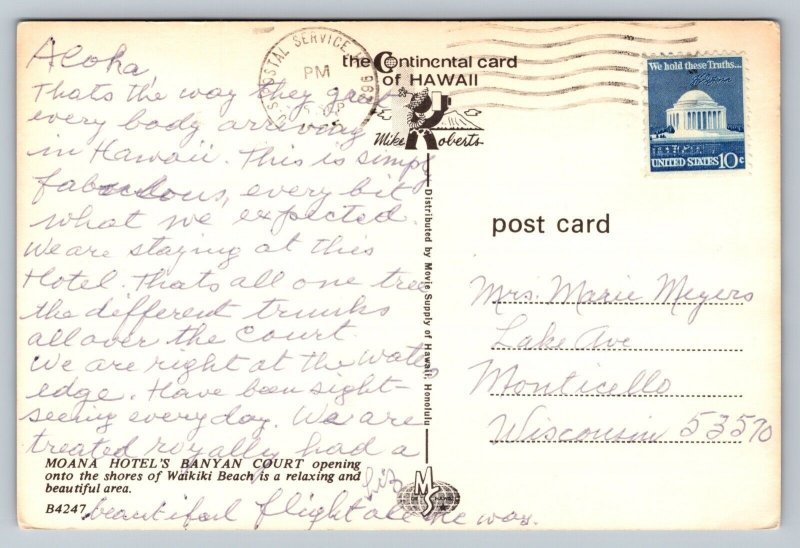 Aloha,
Thats the way they greet
every body arriving
in Hawaii. This is simply
fabulous, every bit
what we expected.
We are staying at this
Hotel. Thats all one tree
the different trunks
all over the court.
We are right at the waters
edge. Have been sight-
seeing everyday. We are
treated royally had a
beautiful flight all the way.
Liz
MOANA HOTEL'S BANYAN COURT opening
onto the shores of Waikiki Beach is a relaxing and
beautiful area.
B4247
POSTAL SERVICE
PM
the Continental card
of HAWAII
Mike Roberts
Distributed by Movie Supply of Hawaii, Honolulu
MS
We hold these Truths...
UNITED STATES 10c
post card
Mrs. Marie Meyers
Lake Ave
Monticello
Wisconsin 53570